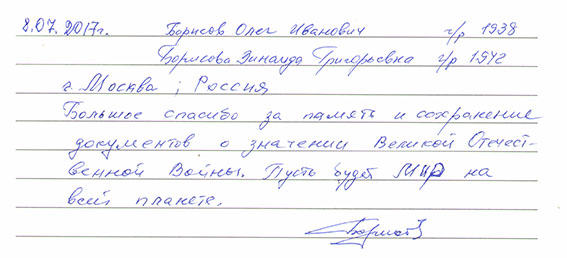 8.07.2017г. Борисов Олег Иванович г/р 1938
Борисова Зинаида Григорьевна г/р 1942
г. Москва; Россия
Большое спасибо за память и сохранение
документов о значении Великой Отечест-
венной Войны. Пусть будет Мир на
всей планете.